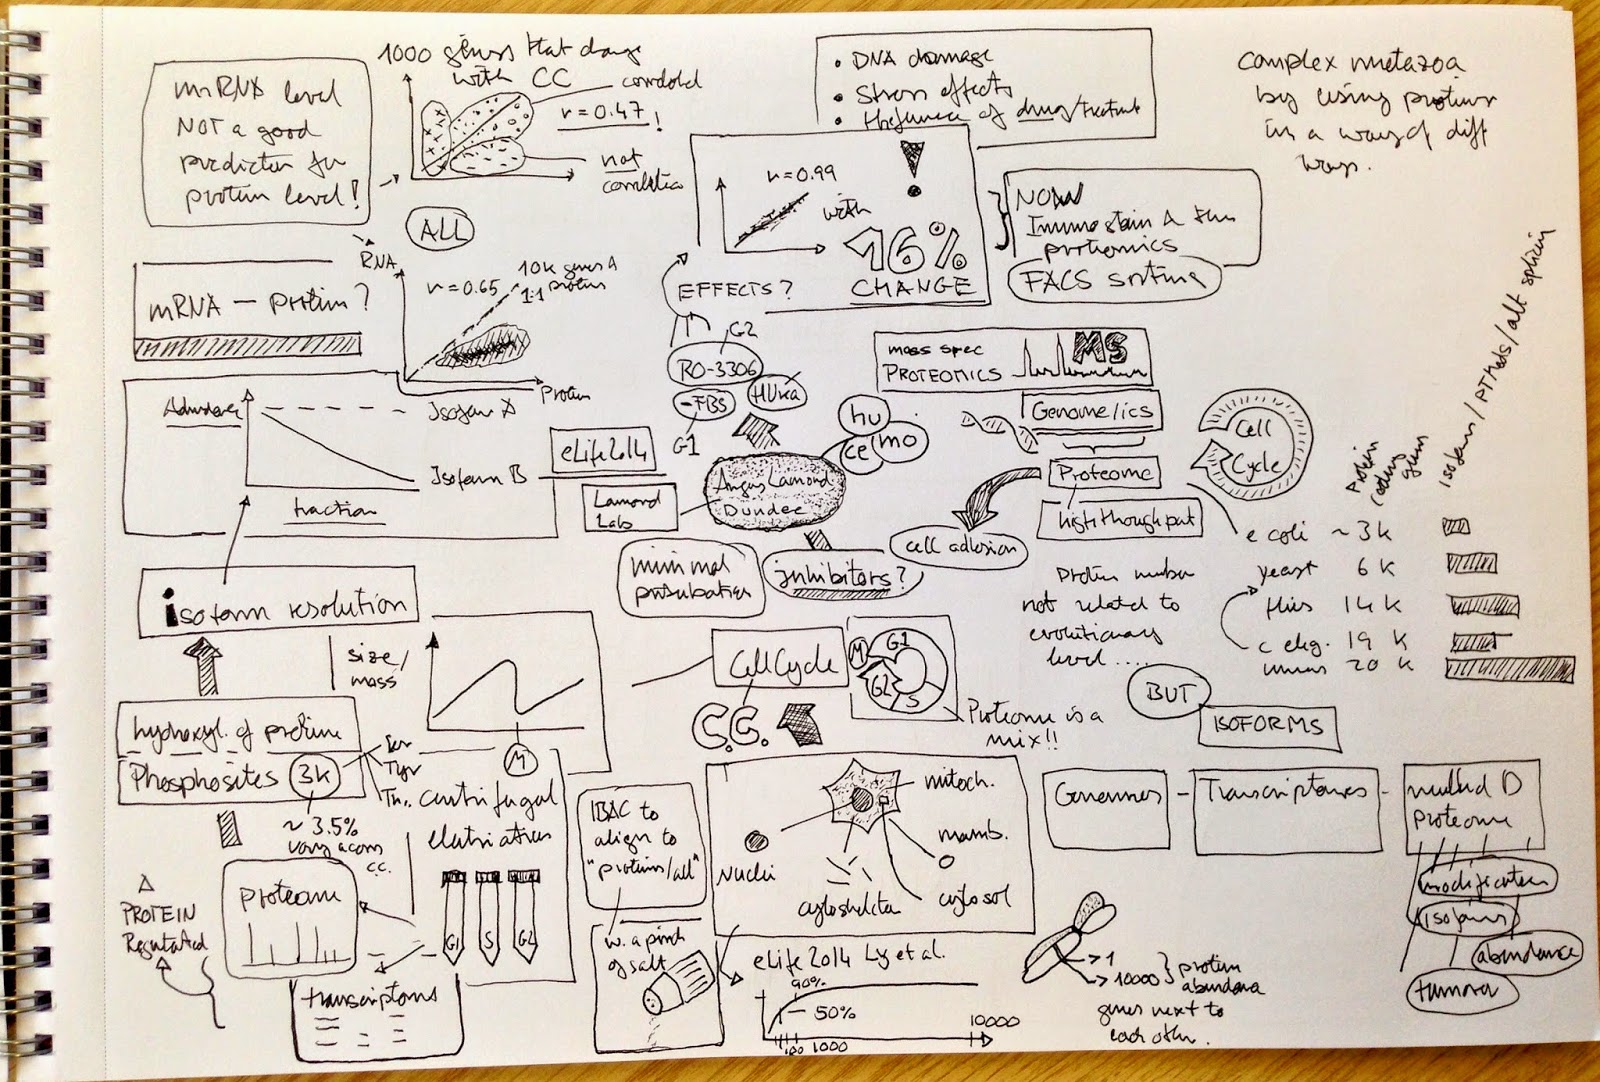 mRNA level
NOT a good
predictor for
protein level!
1000 genes that change
with CC
correlated
r=0.47!
not
correlation
• DNA damage
• Stress effects
• of drug/treatment
complex metazoa
by using proteins
in a way of diff
ways.
r=0.99
with
!
16%
CHANGE
EFFECTS?
NOW
Immunostain &
proteomics
FACS sorting
ALL
RNA
r=0.65
10k genes &
proteins
1:1
Protein
mRNA — protein?
Abundance
Isoform A
Isoform B
fraction
eLife 2014
Lamond
Lab
G2
RO-3306
-FBS
G1
hu
ce
mo
Angus Lamond
Dundee
mass spec
PROTEOMICS
MS
Genome/ics
Proteome
high throughput
cell adhesion
Cell
Cycle
Protein
coding
gen
isoform/PTMods/alt splicin
e coli ~3k
yeast 6k
flies 14k
c eleg. 19k
20k
protein number
not related to
evolutionary
level ....
BUT
ISOFORMS
minimal
perturbation
inhibitors?
isoform resolution
size/
mass
Cell Cycle
C.C.
M
G1
G2
S
Proteome is a
mix!!
hydroxyl. of proline
Phosphosites 3k
Ser
Tyr
~3.5%
vary across
cc.
M
centrifugal
elutriation
G1
S
G2
PROTEIN
Regulated
proteome
transcriptome
IBAC to
align to
"proteins/all"
w. a pinch
of salt
mitoch.
Nuclei
memb.
cytosol
eLife 2014 Ly et al.
90%
50%
100
1000
10000
>1
>10000
protein
abundance
genes next to
each other.
Genomes - Transcriptomes -
proteome
modification
isoforms
abundance